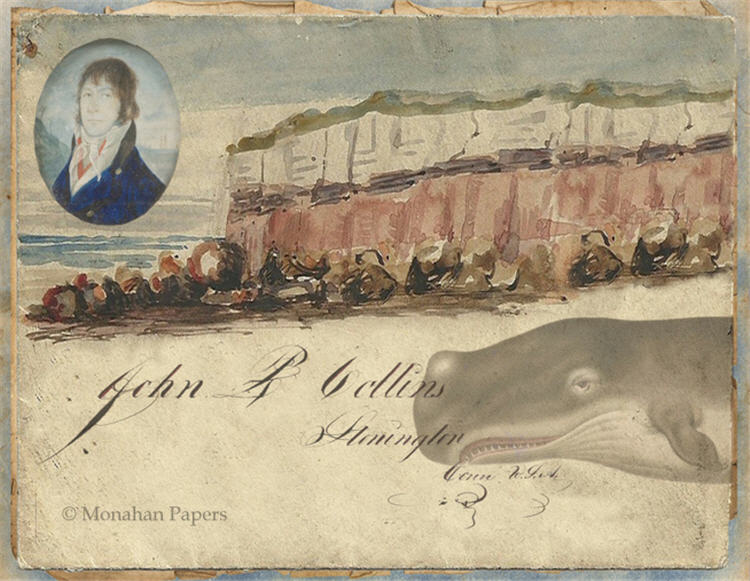 John P Collins
Stonington
Conn U.S.A.
© Monahan Papers